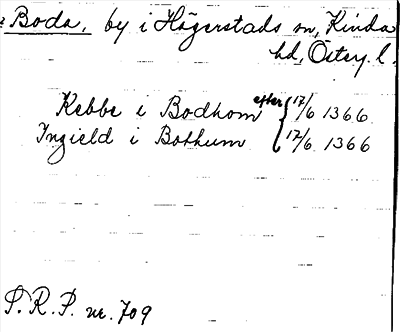 Boda, by i Högerstads sn, Kinda
hd, Östg. l.
Kebbe i Bodhom efter { 17/6 1366
Ingield i Bothum { 17/6 1366
S. R. P. nr. 709